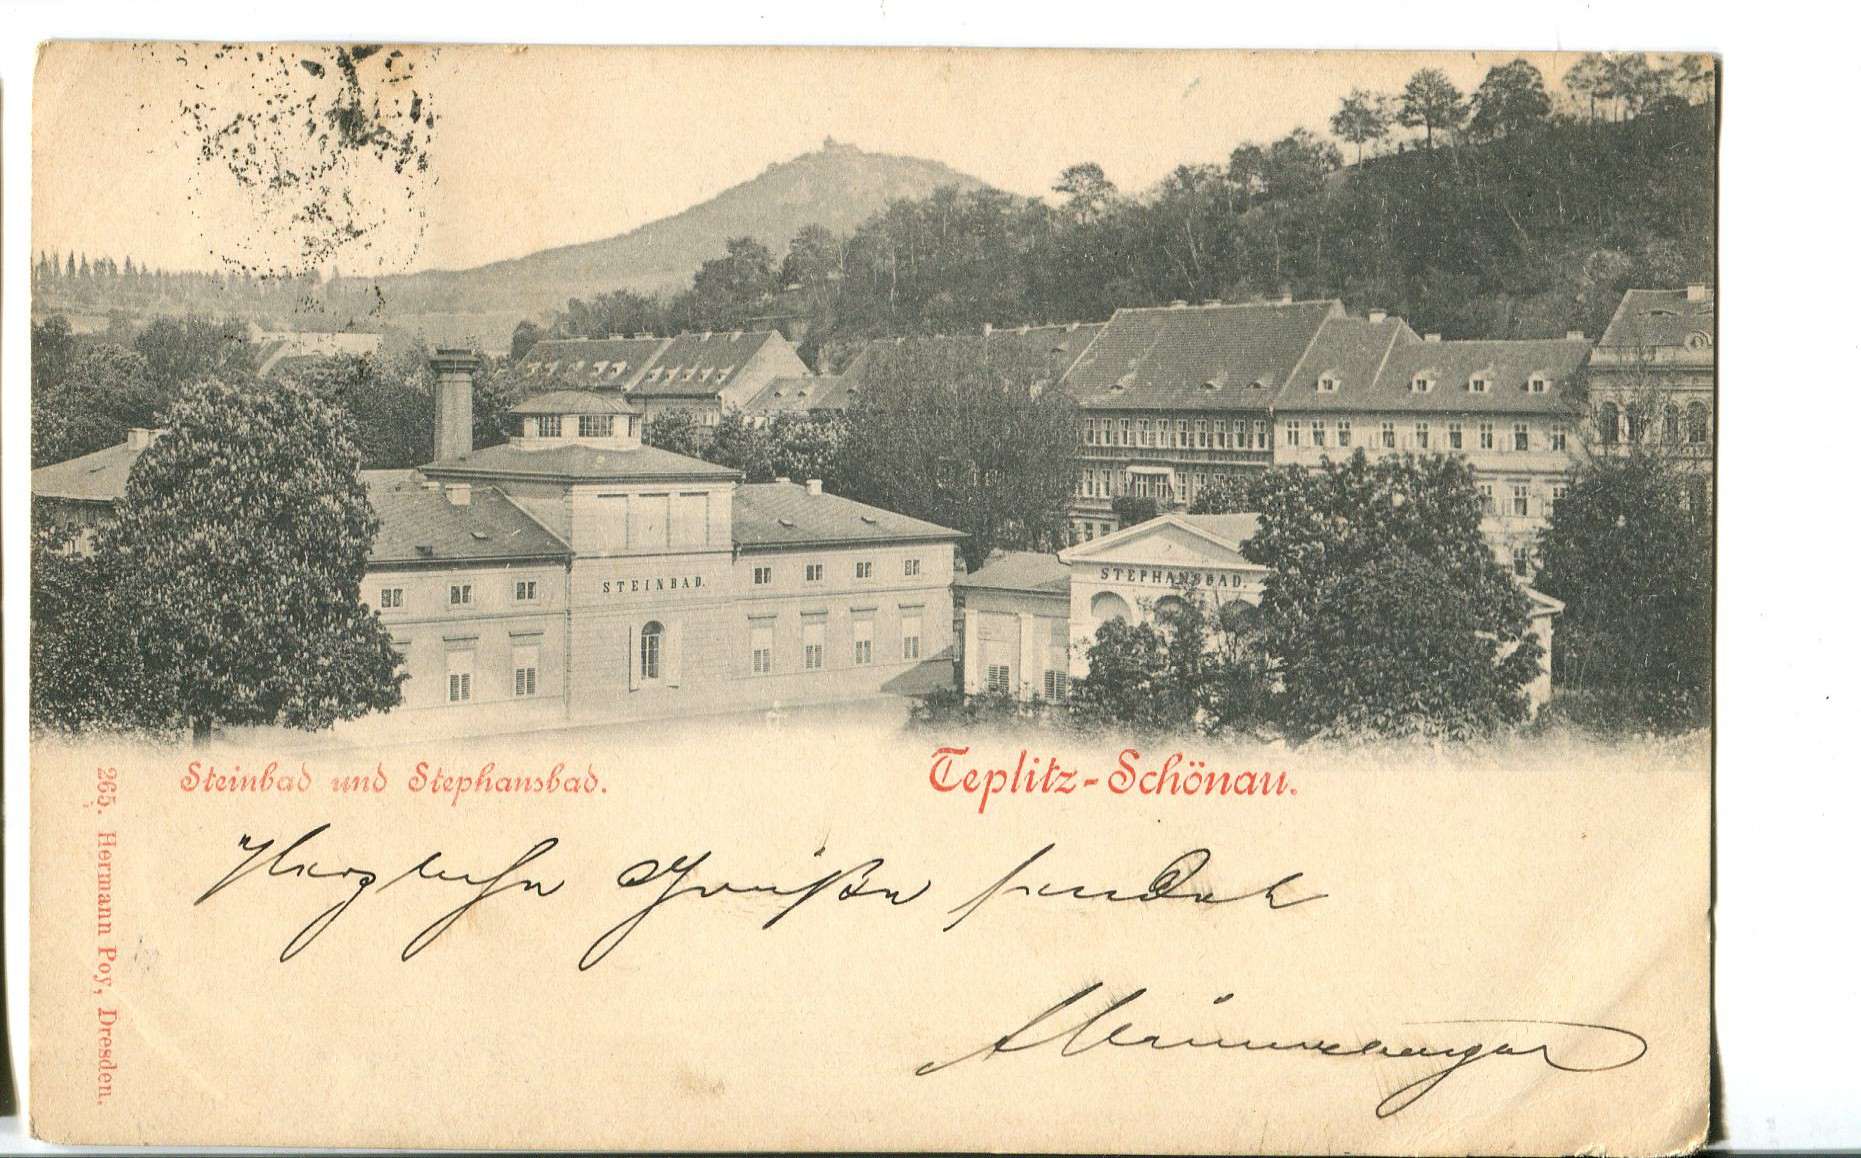 STEINBAD.
STEPHANSBAD.
Steinbad und Stephansbad.
Teplitz-Schönau.
265. Hermann Poy, Dresden.
Herzliche Grüße sendet